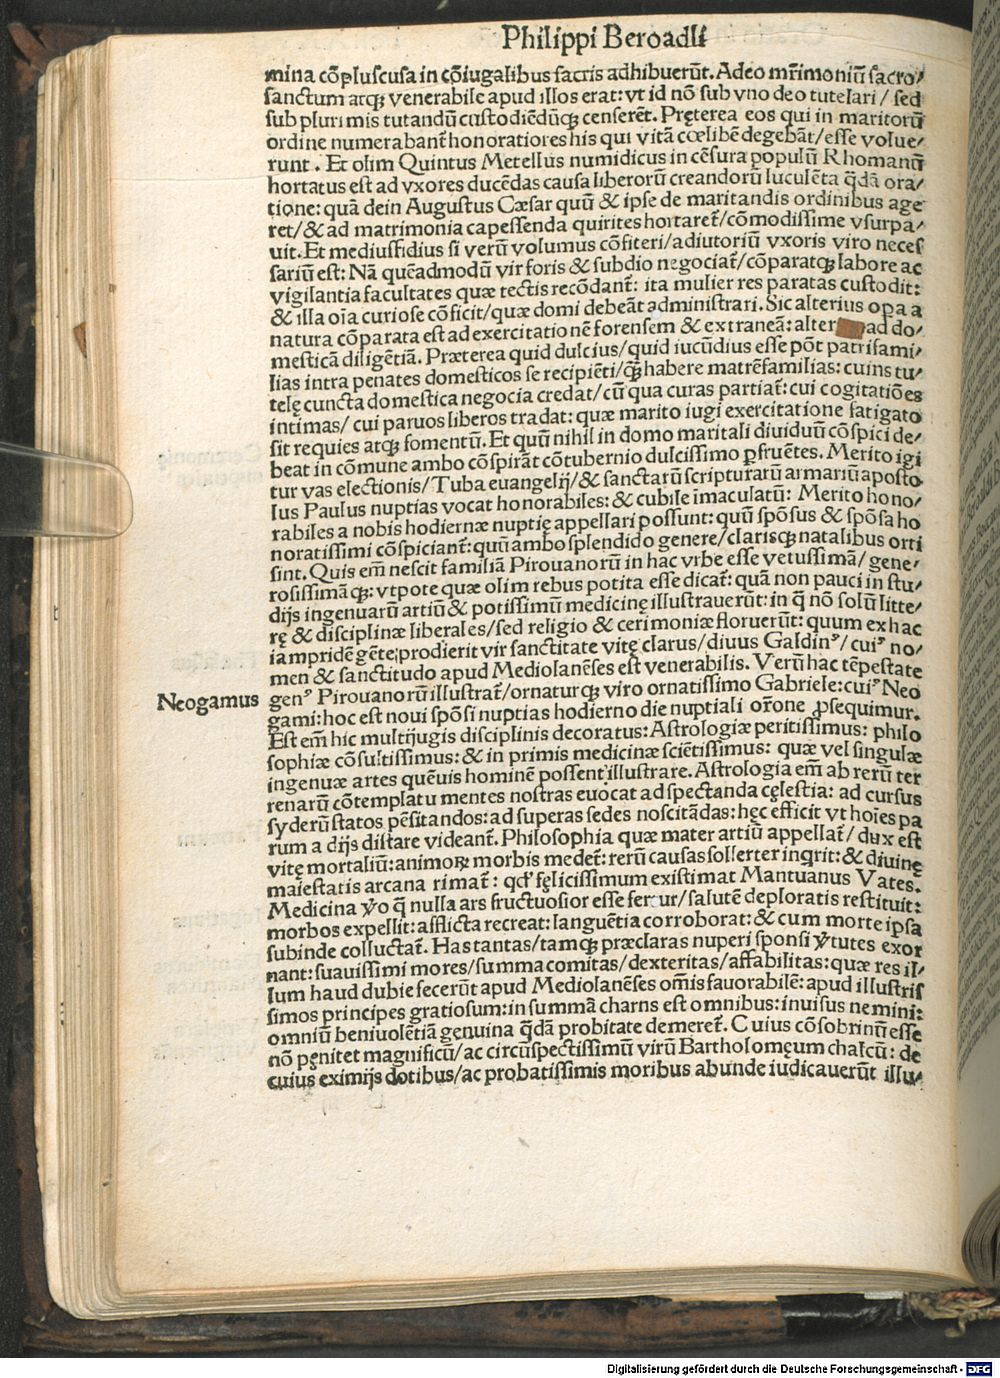 Philippi Beroadli
mina cōpluscusa in cōiugalibus sacris adhibuerūt. Adeo mr̄imoniū sacro/
sanctum atqꝫ venerabile apud illos erat: vt id nō sub vno deo tutelari / sed
sub plurimis tutandū custodiēdūqꝫ censerēt. Pręterea eos qui in maritorū
ordine numerabant̄ honoratiores his qui vitā cœlibē degebāt/esse volue/
runt . Et olim Quintus Metellus numidicus in cēsura populū Rhomanū
hortatus est ad vxores ducēdas causa liberorū creandorū luculēta q̄dā ora/
tione: quā dein Augustus Cæsar quū & ipse de maritandis ordinibus age
ret/& ad matrimonia capessenda quirites hortaret̄/cōmodissime vsurpa/
uit. Et mediusfidius si verū volumus cōfiteri/adiutoriū vxoris viro neces
sariū est: Nā quēadmodū vir foris & subdio negociat̄/cōparatqꝫ labore ac
vigilantia facultates quæ tectis recōdant̄: ita mulier res paratas custodit:
& illa oīa curiose cōficit/quæ domi debeāt administrari. Sic alterius opa a
natura cōparata est ad exercitationē forensem & extraneā: alter ad do/
mesticā diligētiā. Præterea quid dulcius/quid iucūdius esse pōt patrifami/
lias intra penates domesticos se recipiēti/qꝫ habere matrēfamilias: cuius tu/
telę cuncta domestica negocia credat/cū qua curas partiat̄: cui cogitatiōes
intimas/ cui paruos liberos tradat: quæ marito iugi exercitatione fatigato
sit requies atqꝫ fomentū. Et quū nihil in domo maritali diuiduū cōspici de/
beat in cōmune ambo cōspirāt cōtubernio dulcissimo ꝑfruētes. Merito igi
tur vas electionis/Tuba euangelij/& sanctarū scripturarū armariū aposto
lus Paulus nuptias vocat honorabiles: & cubile īmaculatū: Merito hono/
rabiles a nobis hodiernæ nuptię appellari possunt: quū spōsus & spōsa ho
noratissimi cōspiciant̄: quū ambo splendido genere/clarisqꝫ natalibus orti
sint. Quis em̄ nescit familiā Pirouanorū in hac vrbe esse vetustissimā/gene/
rosissimāqꝫ: vtpote quæ olim rebus potita esse dicat̄: quā non pauci in stu/
dijs ingenuarū artiū & potissimū medicinę illustrauerūt: in q̄ nō solū litte/
rę & disciplinæ liberales/sed religio & cerimoniæ floruerūt: quum ex hac
iampridē gēte prodierit vir sanctitate vitę clarus/diuus Galdinꝰ/cuiꝰ no/
men & sanctitudo apud Mediolanēses est venerabilis. Verū hac tēpestate
Neogamus genꝰ Pirouanorū illustrat̄/ornaturqꝫ viro ornatissimo Gabriele: cuiꝰ Neo
gami: hoc est noui spōsi nuptias hodierno die nuptiali or̄one ꝓsequimur.
Est em̄ hic multijugis disciplinis decoratus: Astrologiæ peritissimus: philo
sophiæ cōsultissimus: & in primis medicinæ sciētissimus: quæ vel singulæ
ingenuæ artes quēuis hominē possent illustrare. Astrologia em̄ ab rerū ter
renarū cōtemplatu mentes nostras euocat ad spectanda cęlestia: ad cursus
syderū statos pēsitandos: ad superas sedes noscitādas: hęc efficit vt hoīes pa
rum a dijs distare videant̄. Philosophia quæ mater artiū appellat̄/ dux est
vitę mortaliū: animoꝝ morbis medet̄: rerū causas sollerter inq̄rit: & diuinę
maiestatis arcana rimat̄ : qd̕ fęlicissimum existimat Mantuanus Vates.
Medicina v̄o q̄ nulla ars fructuosior esse fertur/salutē deploratis restituit:
morbos expellit: afflicta recreat: languētia corroborat: & cum morte ipsa
subinde colluctat̄. Has tantas/tamqꝫ præclaras nuperi sponsi v̄tutes exor
nant: suauissimi mores/summa comitas/dexteritas/affabilitas: quæ res il/
lum haud dubie fecerūt apud Mediolanēses om̄is fauorabilē: apud illustris
simos principes gratiosum: in summā charus est omnibus: inuisus nemini:
omniū beniuolētiā genuina q̄dā probitate demeret̄. Cuius cōsobrinū esse
nō pęnitet magnificū/ac circūspectissimū virū Bartholomęum chalcū: de
cuius eximijs dotibus/ac probatissimis moribus abunde iudicauerūt illu/
Digitalisierung gefördert durch die Deutsche Forschungsgemeinschaft - DFG